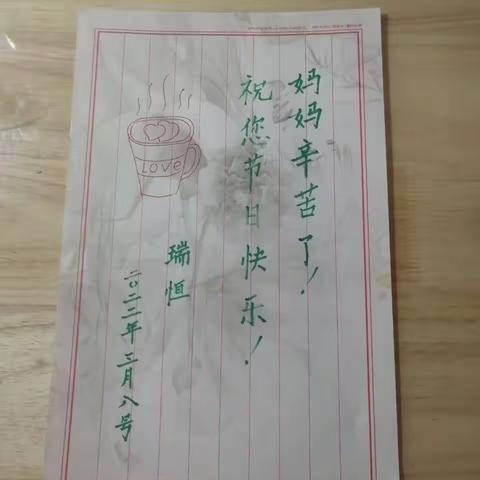 妈妈辛苦了！
祝您节日快乐！
LOVE
瑞恒
二〇二二年三月八号